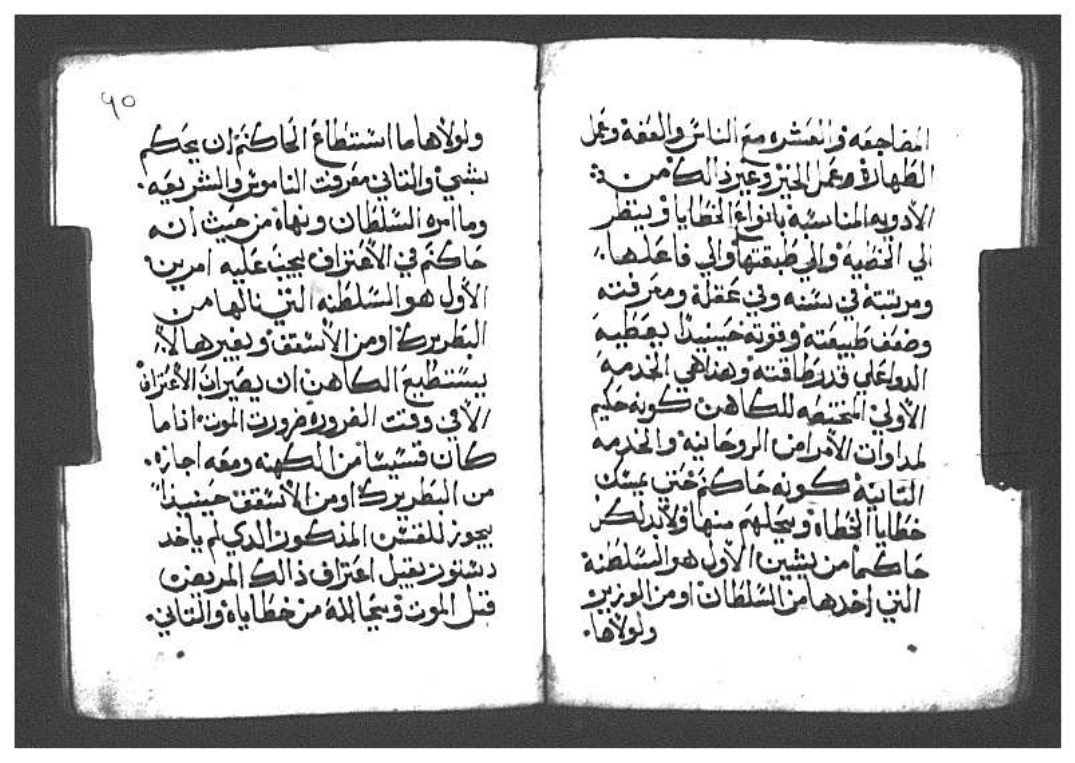 المضاجعه والعشره مع الناس والعفة وعمل
الطهارة وعمل الخير وغير ذالك من
الأدويه المناسبة بانواع الخطايا وينظر
الي الخطية والي طبقتها والي فاعلها
ومرتبته في سنه وفي عقلة ومعرفته
وضعف طبيعته وقوته حينيدٍ يعطيه
الدوا علي قدر طاقته وهذا هي الخدمه
الأولي المختصه للكاهن كونه حكيم
لمداوات الأمراض الروحانية والخدمه
التانية كونه حاكم حتي يمسك
خطايا الخطاه ويحلهم منها ولابد لكل
حاكماً من شيين الأول هو السلطنة
التي اخدها من السلطان او من الوزير
ولولاها.
٩٥
ولولاها ما استطاع الحاكم ان يحكم
بشي والتاني معرفت الناموس والشريعه.
وما امره السلطان ونهاه من حيث انه
حاكم في الأعتراف يجب عليه امرين.
الأول هو السلطنه التي نالها من
البطريرك او من الأسقف وبغيرها لا
يستطيع الكاهن ان يصير اب الأعتراف
الا في وقت الضروره ضرورت الموت اذا ما
كان قسيسا من الكهنه ومعه اجازه.
من البطريرك او من الأسقف حينيداً
يجوز للقس المذكور الدي لم ياخد
دستور يقبل اعتراف ذالك المريض
قبل الموت ويحالله من خطاياه والتاني.